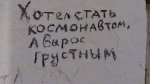 Хотел стать
космонавтом,
А вырос
грустным